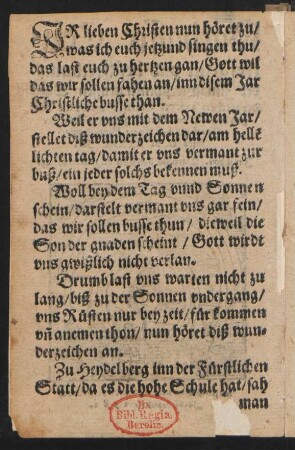 IR lieben Christen nun höret zu/
was ich euch jetzund singen thu/
das last euch zu hertzen gan/ Gott wil
das wir sollen fahen an/ inn disem Jar
Christliche busse than.
Weil er vns mit dem Newen Jar/
stellet diß wunderzeichen dar/ am hellē
lichten tag/ damit er vns vermant zur
buß/ ein jeder solchs bekennen muß.
Woll bey dem Tag vnnd Sonnen
schein/ darstelt vermant vns gar fein/
das wir sollen busse thun/ dieweil die
Son der gnaden scheint/ Gott wirdt
vns gwißlich nicht verlan.
Drumb last vns warten nicht zu
lang/ biß zu der Sonnen vndergang/
vns Rüsten nur bey zeit/ für kommen
vñ anemen thon/ nun höret diß wun-
derzeichen an.
Zu Heydelberg inn der Fürstlichen
Statt/ da es die hohe Schule hat/ sah
man
Ex
Bibl. Regia
Berolin.